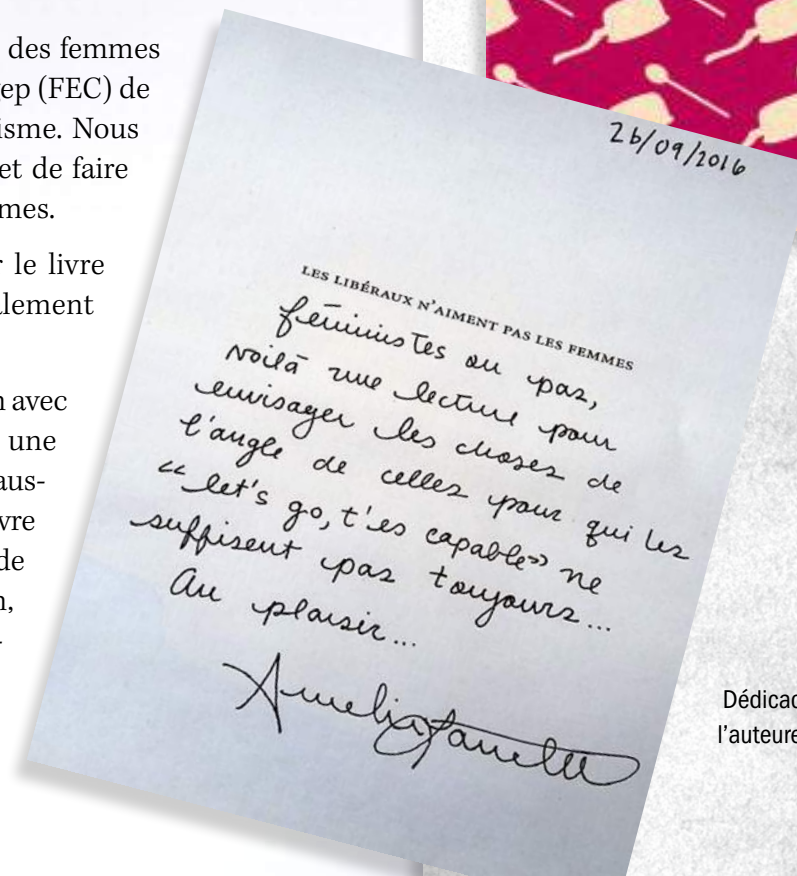 des femmes
ep (FEC) de
isme. Nous
et de faire
mes.
r le livre
alement
n avec
une
aus-
vre
de
n,
26/09/2016
LES LIBÉRAUX N'AIMENT PAS LES FEMMES
féministes ou pas,
voilà une lecture pour
envisager les choses de
l'angle de celles pour qui les
« let's go, t'es capable » ne
suffisent pas toujours...
Au plaisir...
Dédicac
l'auteure